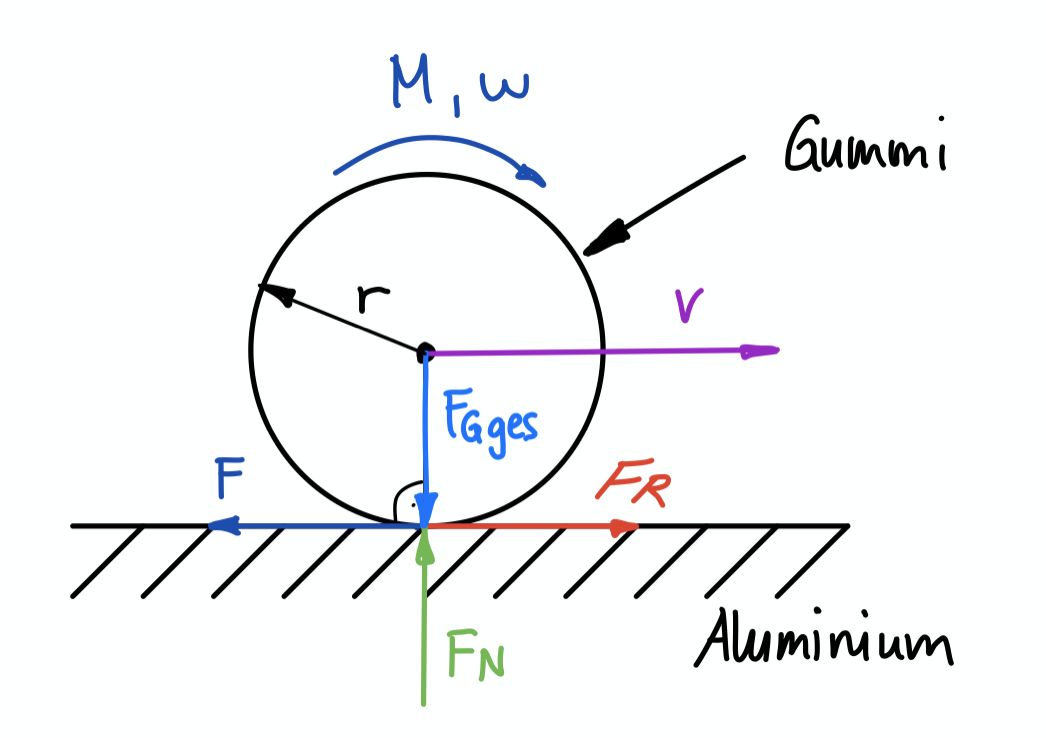 M, w
Gummi
r
v
F_Gges
F
F_R
F_N
Aluminium